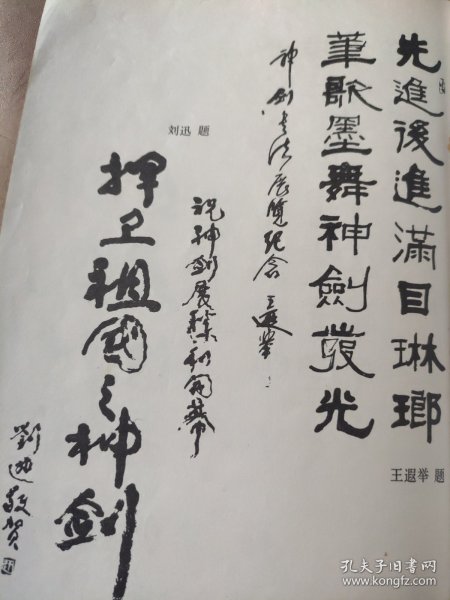 先進後進滿目琳瑯
筆歌墨舞神劍發光
神剑书法展览纪念 王遐举
王遐举 题
刘迅 题
祝神剑展胜利開幕
捍卫祖國之神剑
劉迅敬贺
孔夫子旧书网
www.kongfz.com